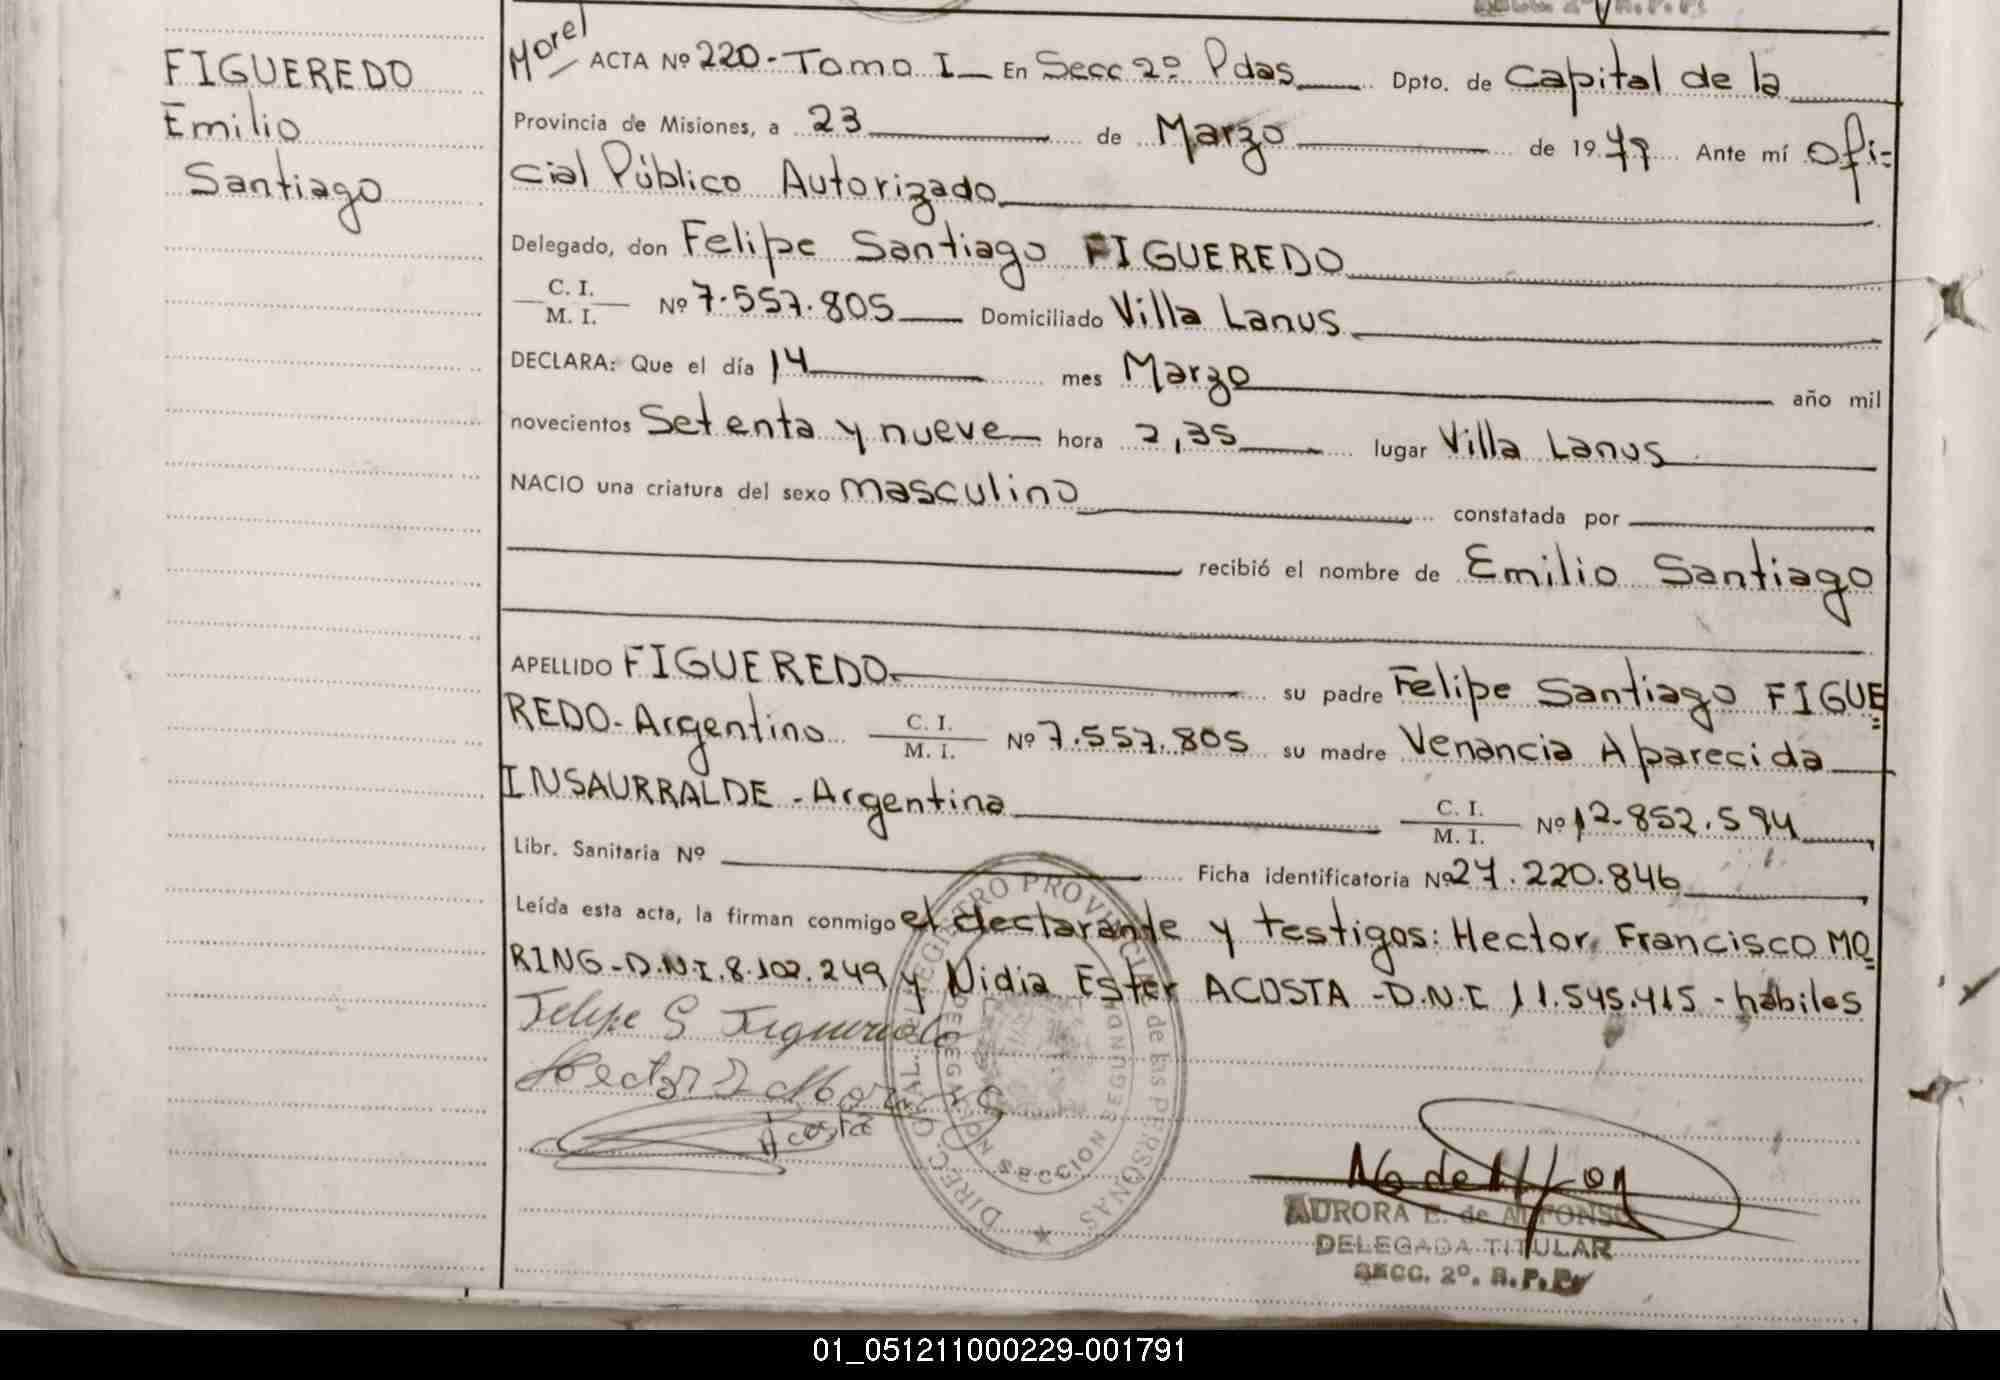 SECC. 2º R.P.P.
FIGUEREDO
Emilio
Santiago
Morel ACTA Nº 220-Tomo I En Secc 2º Pdas Dpto. de Capital de la
Provincia de Misiones, a 23 de Marzo de 1979 Ante mí Ofi=
cial Público Autorizado
Delegado, don Felipe Santiago FIGUEREDO
C. I.
M. I. Nº 7.557.805 Domiciliado Villa Lanus
DECLARA: Que el día 14 mes Marzo año mil
novecientos Setenta y nueve hora 2,35 lugar Villa Lanus
NACIO una criatura del sexo masculino constatada por
recibió el nombre de Emilio Santiago
APELLIDO FIGUEREDO su padre Felipe Santiago FIGUE=
REDO-Argentino C. I. M. I. Nº 7.557.805 su madre Venancia Aparecida
INSAURRALDE - Argentina C. I. M. I. Nº 12.852.594
Libr. Sanitaria Nº Ficha identificatoria Nº 27.220.846
Leída esta acta, la firman conmigo el declarante y testigos: Hector Francisco MO=
RING-D.N.I.8.102.249 y Nidia Ester ACOSTA -D.N.I 11.545.415 - habiles
Felipe S Figueredo
Hector F Moring
Acosta
DIRECC. GRAL. REGISTRO PROVINCIAL de las PERSONAS
SECCION SEGUNDA
AURORA E. de ALFONSO
DELEGADA TITULAR
SECC. 2º. R.P.P.
01_051211000229-001791